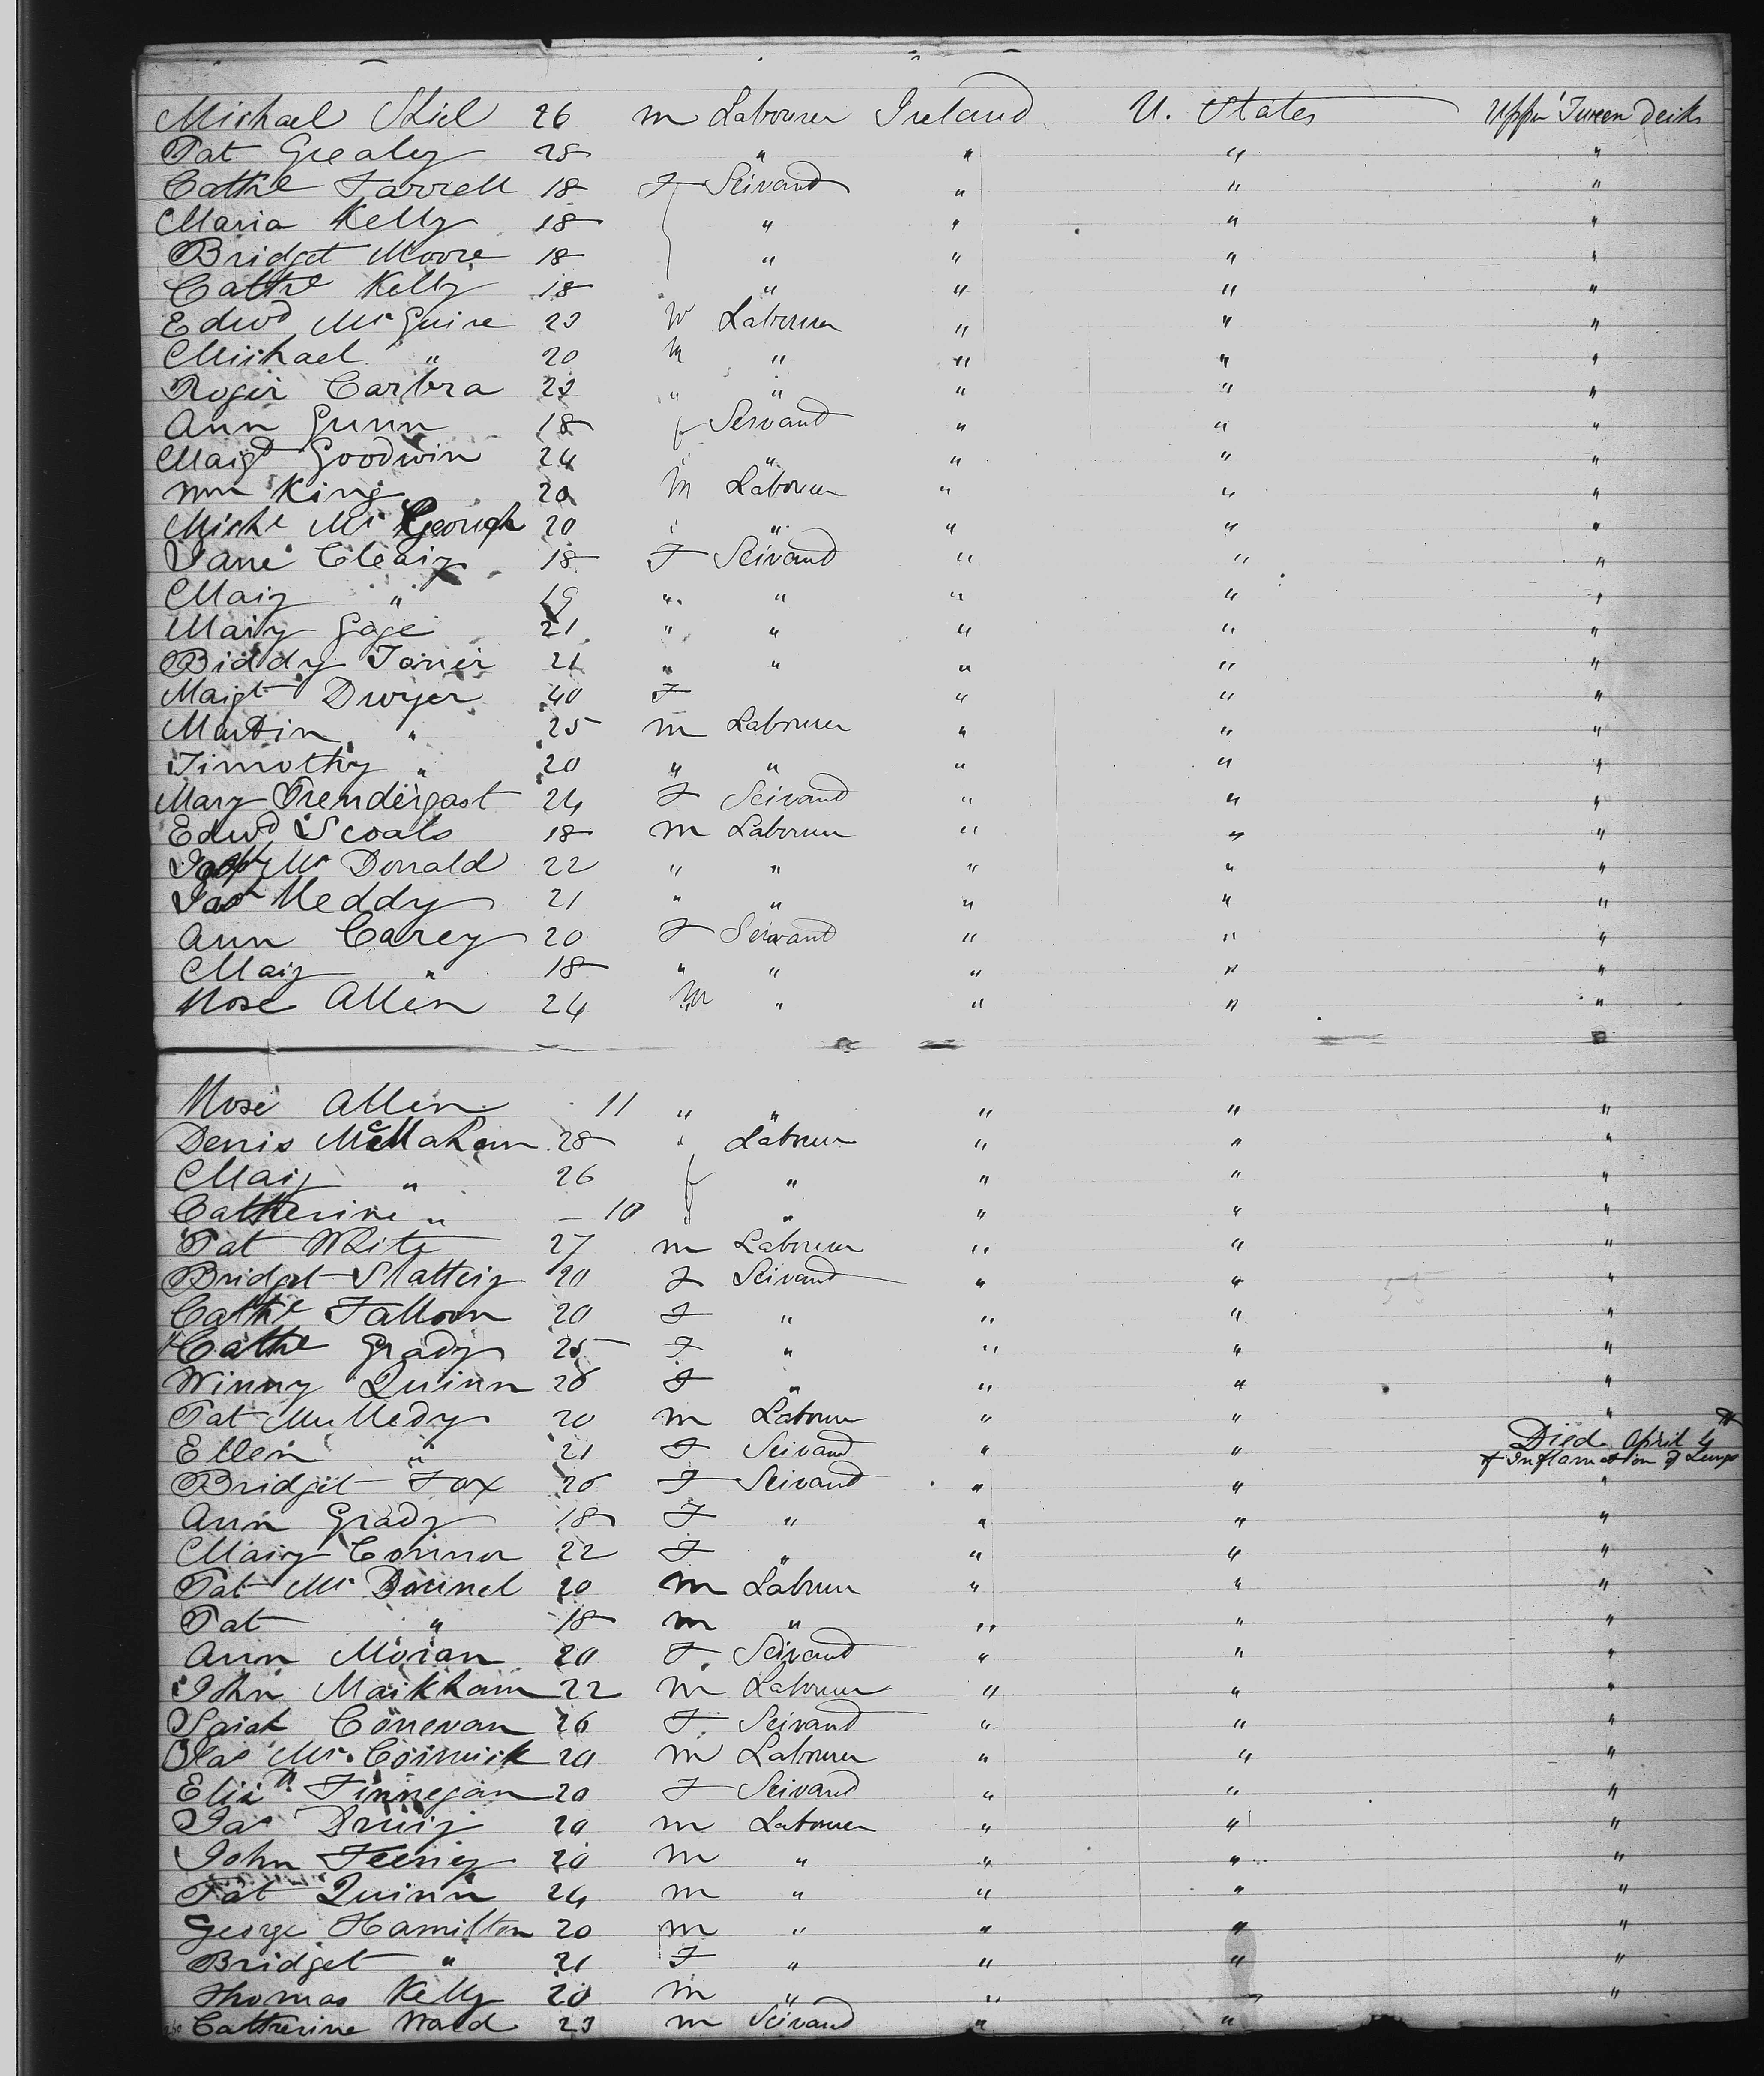 Michael Shiel 26 m Labourer Ireland U. States Upper Tween decks
Pat Grealey 28 " " " "
Cathe Farrell 18 F Servand " " "
Maria Kelly 18 " " " "
Bridget Moore 18 " " " "
Cathe Kelly 18 " " " "
Edwd McGuire 23 m Labourer " " "
Michael " 20 m " " " "
Roger Carbra 23 " " " " "
Ann Gunn 18 f Servand " " "
Margt Goodwin 24 " " " " "
Wm King 20 m Labourer " " "
Michl Mc Geough 20 " " " " "
Jane Cleary 18 F Servand " " "
Mary " 19 " " " " "
Mary Gage 21 " " " " "
Biddy Toner 21 " " " " "
Margt Dwyer 40 F " " "
Martin " 25 m Labourer " " "
Timothy " 20 " " " " "
Mary Prendergast 24 F Servand " " "
Edwd Scoals 18 m Labourer " " "
Mc Donald 22 " " " " "
Jas Meddy 21 " " " " "
Ann Carey 20 F Servand " " "
Mary " 18 " " " " "
Rose Allen 24 m " " " "
Rose Allen 11 " " " " "
Denis McMahon 28 " Labourer " " "
Mary " 26 f " " " "
Catherine " — 10 " " " " "
Pat White 27 m Labourer " " "
Bridget Slattery 20 F Servand " " "
Cathe Falloon 20 F " " " "
Cathe Grady 25 F " " " "
Winny Quinn 26 F " " " "
Pat Mulledy 20 m Labourer " " "
Ellen " 21 F Servand " " Died April 4th
of Inflamation of Lungs
Bridget Fox 26 F Servand " " "
Ann Grady 18 F " " " "
Mary Connor 22 F " " " "
Pat Mc Donnel 20 m Labourer " " "
Pat " 18 m " " " "
Ann Moran 20 F Servand " " "
John Markham 22 m Labourer " " "
Sarah Conevan 26 F Servand " " "
Mc Cormick 20 m Labourer " " "
Elizth Finnegan 20 F Servand " " "
Jas 20 m Labourer " " "
John Feeney 20 m " " " "
Pat Quinn 24 m " " " "
George Hamilton 20 m " " " "
Bridget " 21 F " " " "
Thomas Kelly 20 m " " " "
Catherine Ward 23 m Servand " "